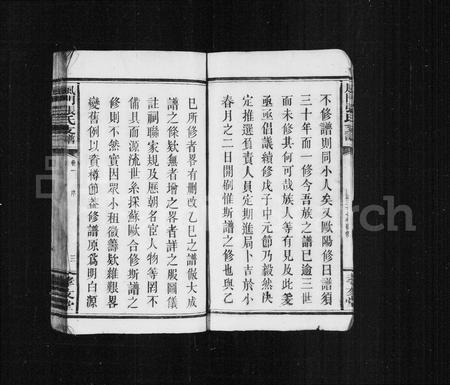 不修譜則同小人矣又歐陽修曰譜須
三十年而一修今吾族之譜已逾三世
而未修其何可哉族人等有見及此爰
亟亟倡議續修戊子中元節乃毅然決
定推選負責人員定期進局卜吉於小
春月之二日開刷惟斯譜之修也與乙
巳所修者畧有刪改乙巳之譜倣大成
譜之條欵無者增之畧者詳之服圖儀
註祠聯家規及歷朝名宦人物等罔不
備具而源流世系採蘇歐合修斯譜之
修則不然實因眾小租微籌欵維艱畧
變舊例以資樽節葢修譜原爲明白源
卷一 序
三
孝友堂